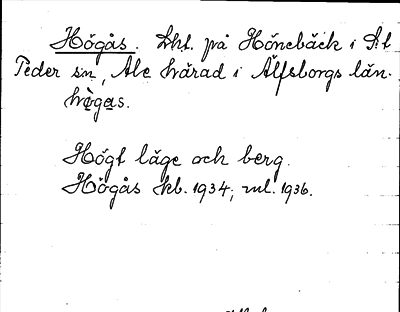 Högås. Lht. på Hönebäck i S:t
Peder sn, Ale härad i Älfsborgs län.
högas.
Högt läge och berg.
Högås kb. 1934; ml. 1936.